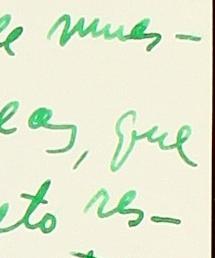 e nues-
eas, que
eto res-